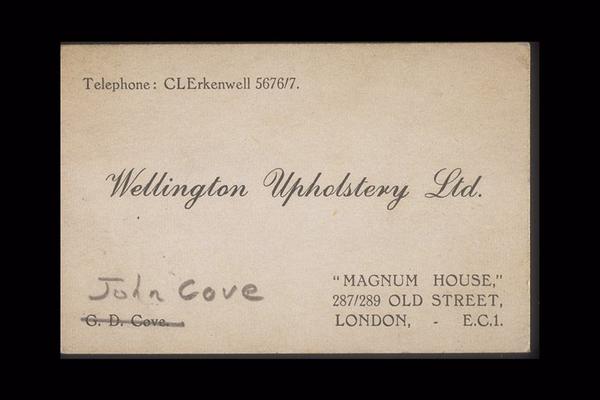 Telephone: CLErkenwell 5676/7.
Wellington Upholstery Ltd.
John Cove
G. D. Cove.
"MAGNUM HOUSE,"
287/289 OLD STREET,
LONDON, - E.C.1.